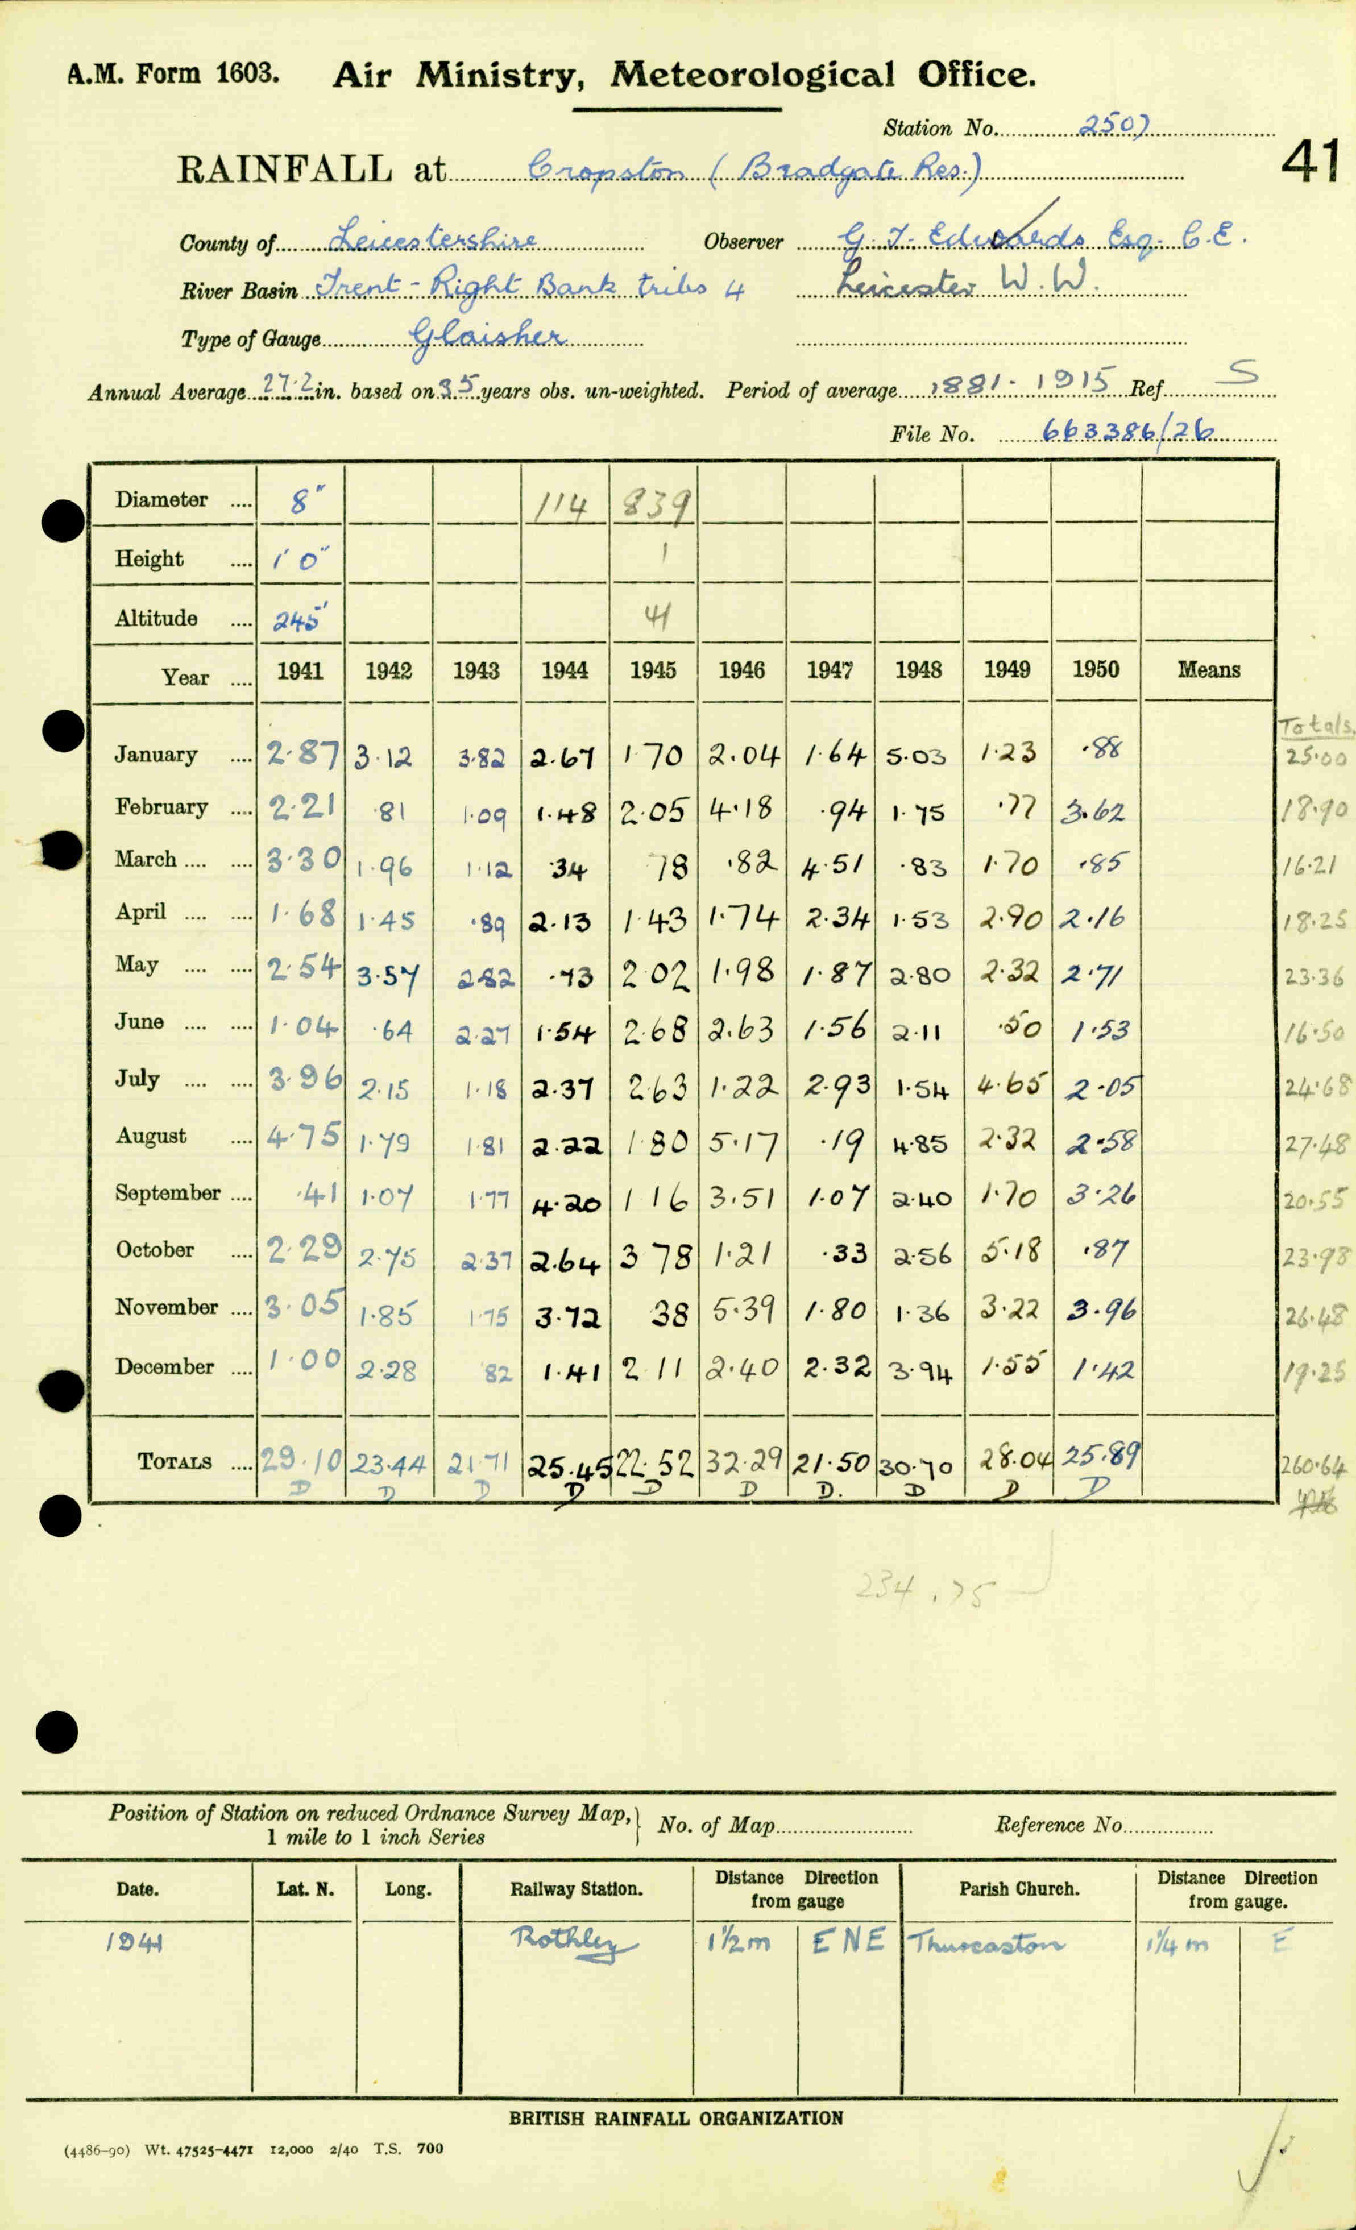 A.M. Form 1603. Air Ministry, Meteorological Office.
Station No. 2507
41
RAINFALL at Cropston (Bradgate Res.)
County of Leicestershire Observer G. T. Edwards Esq. C.E.
River Basin Trent - Right Bank tribs 4 Leicester W.W.
Type of Gauge Glaisher
Annual Average 27.2 in. based on 35 years obs. un-weighted. Period of average 1881-1915 Ref S
File No. 663386/26
Diameter .... 8" 114 839
Height .... 1' 0" 1
Altitude .... 245' 41
Year .... 1941 1942 1943 1944 1945 1946 1947 1948 1949 1950 Means
Totals
January .... 2.87 3.12 3.82 2.67 1.70 2.04 1.64 5.03 1.23 .88 25.00
February .... 2.21 .81 1.09 1.48 2.05 4.18 .94 1.75 .77 3.62 18.90
March .... .... 3.30 1.96 1.12 34 78 .82 4.51 .83 1.70 .85 16.21
April .... .... 1.68 1.45 .89 2.13 1.43 1.74 2.34 1.53 2.90 2.16 18.25
May .... .... 2.54 3.57 2.82 .73 2 02 1.98 1.87 2.80 2.32 2.71 23.36
June .... .... 1.04 .64 2.27 1.54 2.68 2.63 1.56 2.11 .50 1.53 16.50
July .... .... 3.96 2.15 1.18 2.37 2.63 1.22 2.93 1.54 4.65 2.05 24.68
August .... 4.75 1.79 1.81 2.22 1 80 5.17 .19 4.85 2.32 2.58 27.48
September .... .41 1.07 1.77 4.20 1 16 3.51 1.07 2.40 1.70 3.26 20.55
October .... 2.29 2.75 2.37 2.64 3 78 1.21 .33 2.56 5.18 .87 23.98
November .... 3.05 1.85 1.75 3.72 38 5.39 1.80 1.36 3.22 3.96 26.48
December .... 1.00 2.28 82 1.41 2 11 2.40 2.32 3.94 1.55 1.42 19.25
TOTALS .... 29.10 23.44 21.71 25.45 22.52 32.29 21.50 30.70 28.04 25.89 260.64
D D D D D D D. D D D
234.75
Position of Station on reduced Ordnance Survey Map, 1 mile to 1 inch Series } No. of Map Reference No.
Date. Lat. N. Long. Railway Station. Distance Direction from gauge Parish Church. Distance Direction from gauge.
1941 Rothley 1 1/2 m ENE Thurcaston 1 1/4 m E
BRITISH RAINFALL ORGANIZATION
(4486-90) Wt. 47525-4471 12,000 2/40 T.S. 700